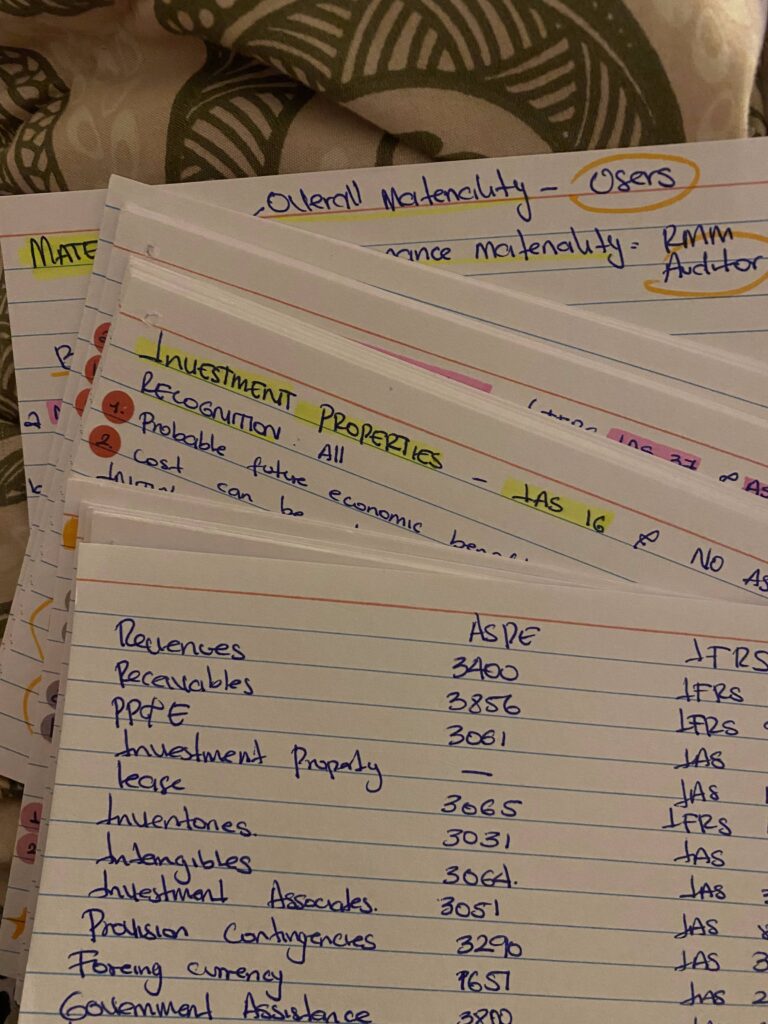 Overall Materiality - Users
MATE
mance materiality = RMM
Auditor
IAS 37 & AS
INVESTMENT PROPERTIES - IAS 16 & NO AS
RECOGNITION: All
1. Probable future economic
2. Cost can be
ASPE IFRS
Revenues 3400 IFRS
Receivables 3856 IFRS
PP&E 3061 IAS
Investment Property — IAS
lease 3065 IFRS
Inventories. 3031 IAS
Intangibles 3064. IAS
Investment Associates. 3051 IAS
Provision Contingencies 3290 IAS 3
Foreing currency 1651 IAS 2
Government Assistence 3800